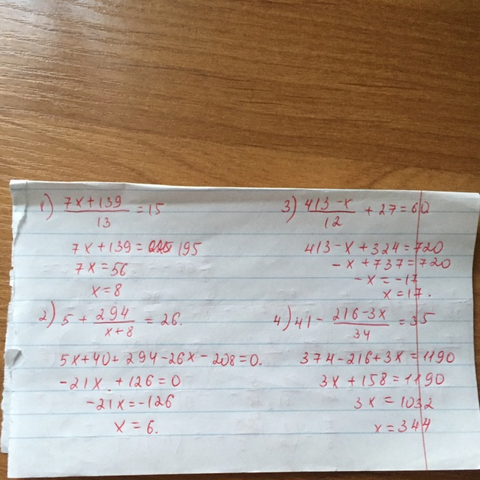 1) (7x+139)/13 = 15
7x+139=195
7x=56
x=8
2) 5 + 294/(x+8) = 26.
5x+40+294-26x-208=0.
-21x+126=0
-21x=-126
x=6.
3) (413-x)/12 + 27=60
413-x+324=720
-x+737=720
-x=-17
x=17.
4) 41 - (216-3x)/34 = 35
374-216+3x=1190
3x+158=1190
3x=1032
x=344